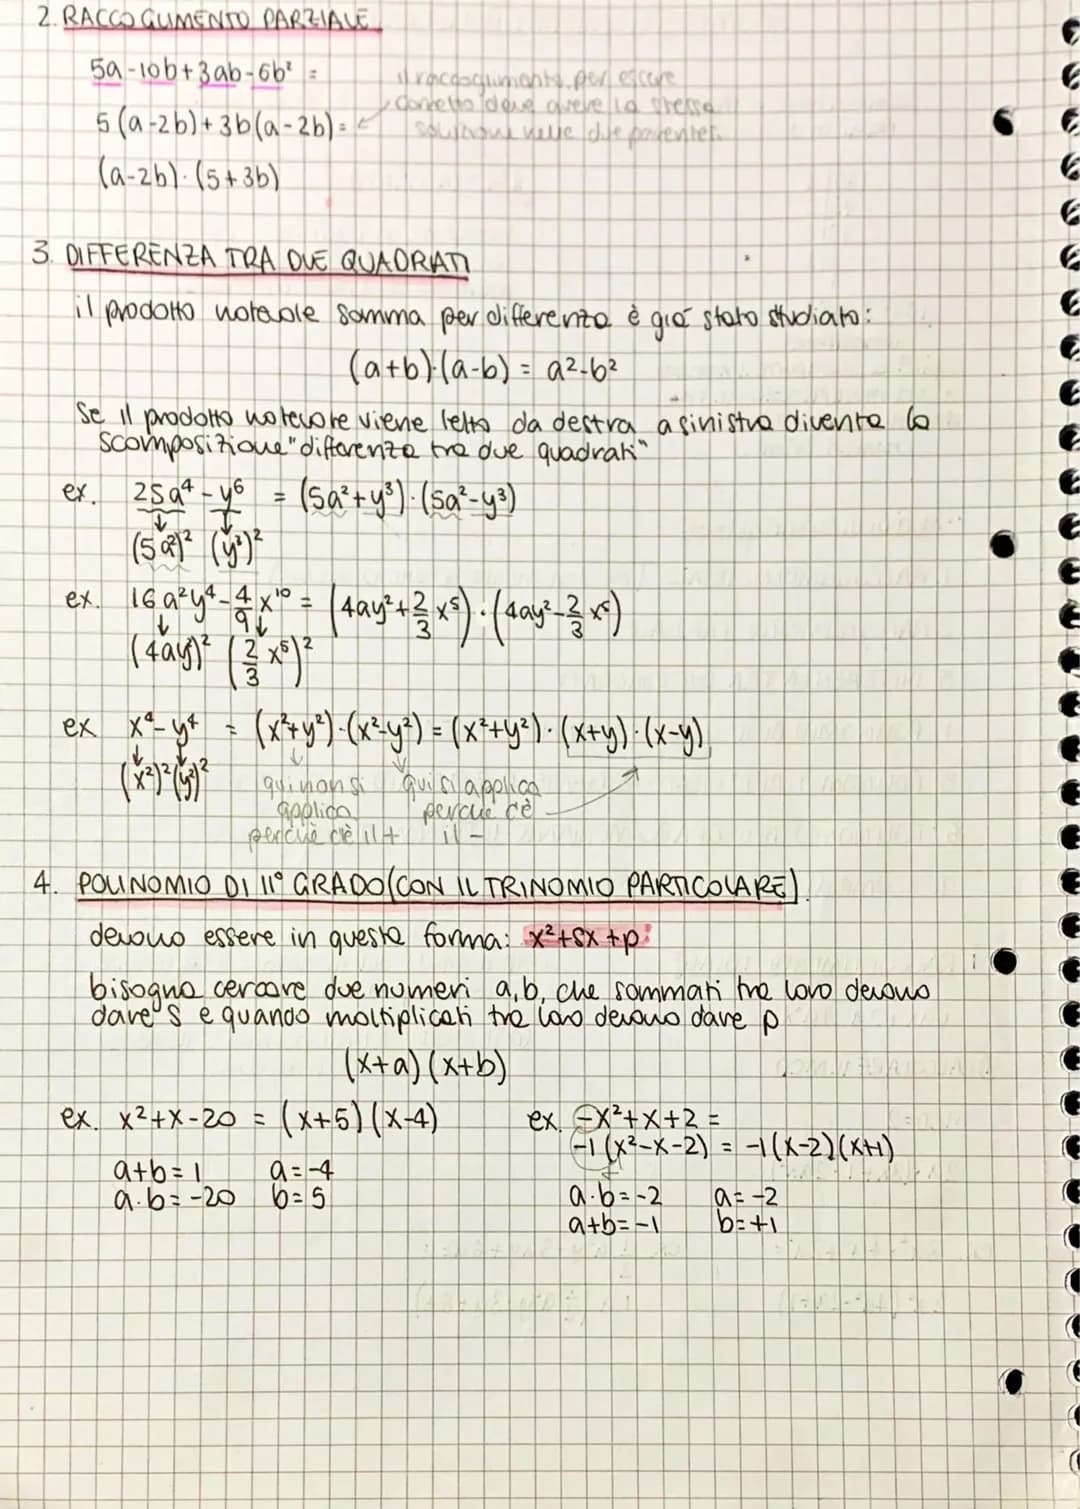 2. RACCOGLIMENTO PARZIALE
5a-10b+3ab-6b² =
il raccoglimento, per essere
corretto deve avere la stessa
soluzione nelle due parentesi
5(a-2b)+3b(a-2b)=
(a-2b)·(5+3b)
3. DIFFERENZA TRA DUE QUADRATI
il prodotto notevole somma per differenza è già stato studiato:
(a+b)·(a-b) = a²-b²
Se il prodotto notevole viene letto da destra a sinistra diventa la
scomposizione "differenza tra due quadrati"
ex. 25a⁴-y⁶ = (5a²+y³)·(5a²-y³)
(5a²)² (y³)²
ex. 16a²y⁴-4/9x¹⁰ = (4ay²+2/3x⁵)·(4ay²-2/3x⁵)
(4ay²)² (2/3x⁵)²
ex x⁴-y⁴ = (x²+y²)·(x²-y²) = (x²+y²)·(x+y)·(x-y)
(x²)²(y²)²
qui non si
applica
perchè c'è il +
qui si applica
perchè c'è
il -
4. POLINOMIO DI II° GRADO (CON IL TRINOMIO PARTICOLARE)
devono essere in questa forma: x²+sx+p
bisogna cercare due numeri a,b, che sommati tra loro devono
dare s e quando moltiplicati tra loro devono dare p
(x+a)(x+b)
ex. x²+x-20 = (x+5)(x-4)
a+b=1 a=-4
a·b=-20 b=5
ex. -x²+x+2 =
-1(x²-x-2) = -1(x-2)(x+1)
a·b=-2 a=-2
a+b=-1 b=+1